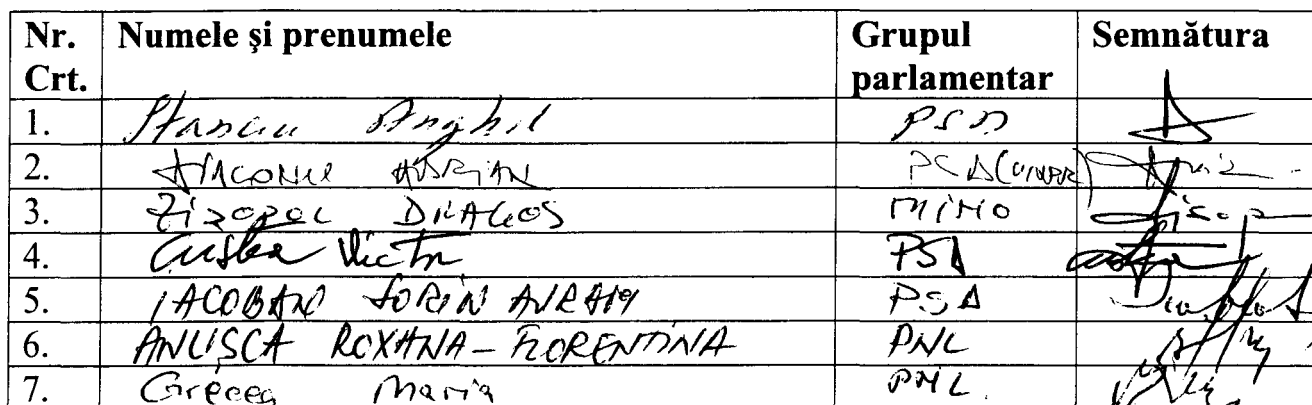 Nr. Crt. Numele și prenumele Grupul parlamentar Semnătura
1. Stanciu Anghel PSD
2. DIACONU ADRIAN PSD(UNPR)
3. Zisopol DRAGOS MINO
4. Cristea Victor PSD
5. IACOBAN SORIN AVRAM PSD
6. ANUȘCA ROXANA-FLORENTINA PNL
7. Grecea Maria PNL